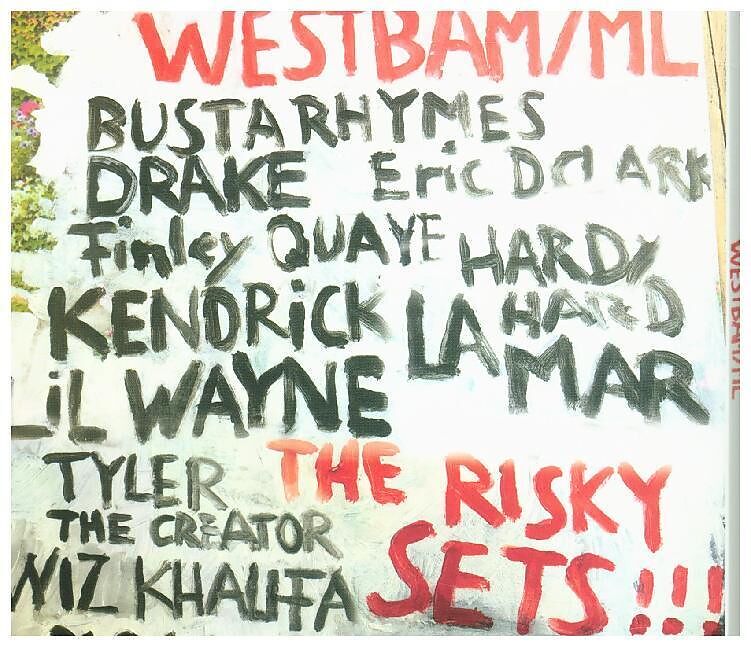 WESTBAM/ML
BUSTA RHYMES
DRAKE Eric D CLARK
Finley QUAYE HARDY
HARD
KENDRiCK LAMAR
LiL WAYNE
TYLER
THE CREATOR
WiZ KHALiFA
THE RISKY
SETS!!!
WESTBAM/ML